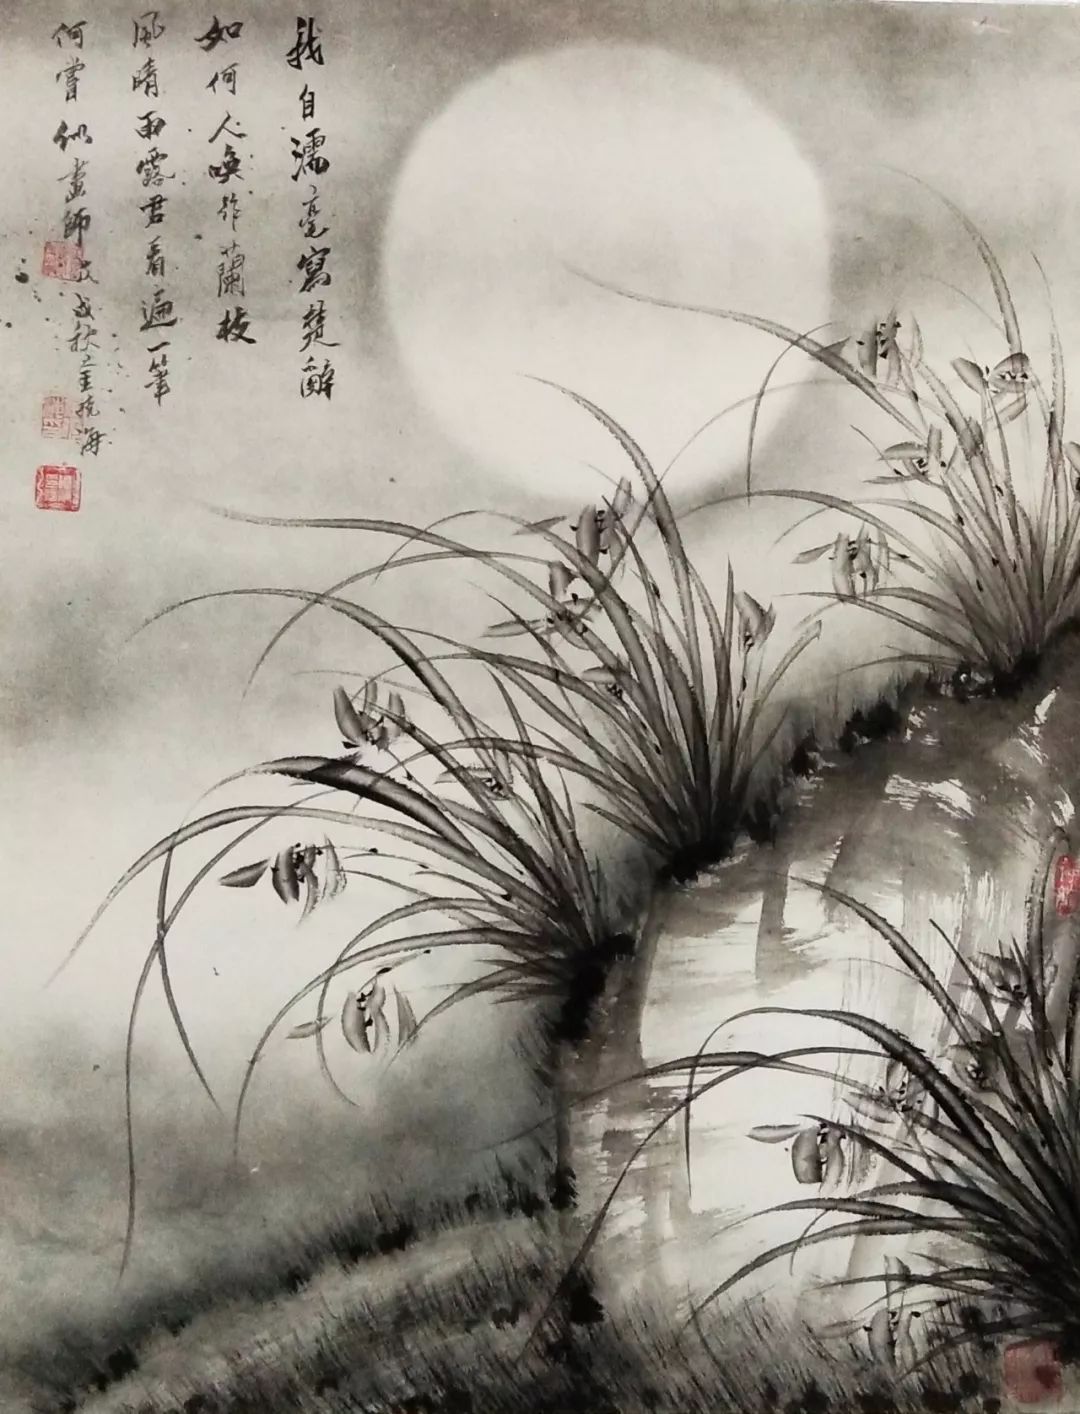 我自濡毫寫楚辭
如何人喚作蘭枝
風晴雨露君看遍一筆
何嘗似畫師 戊戌秋 王曉海